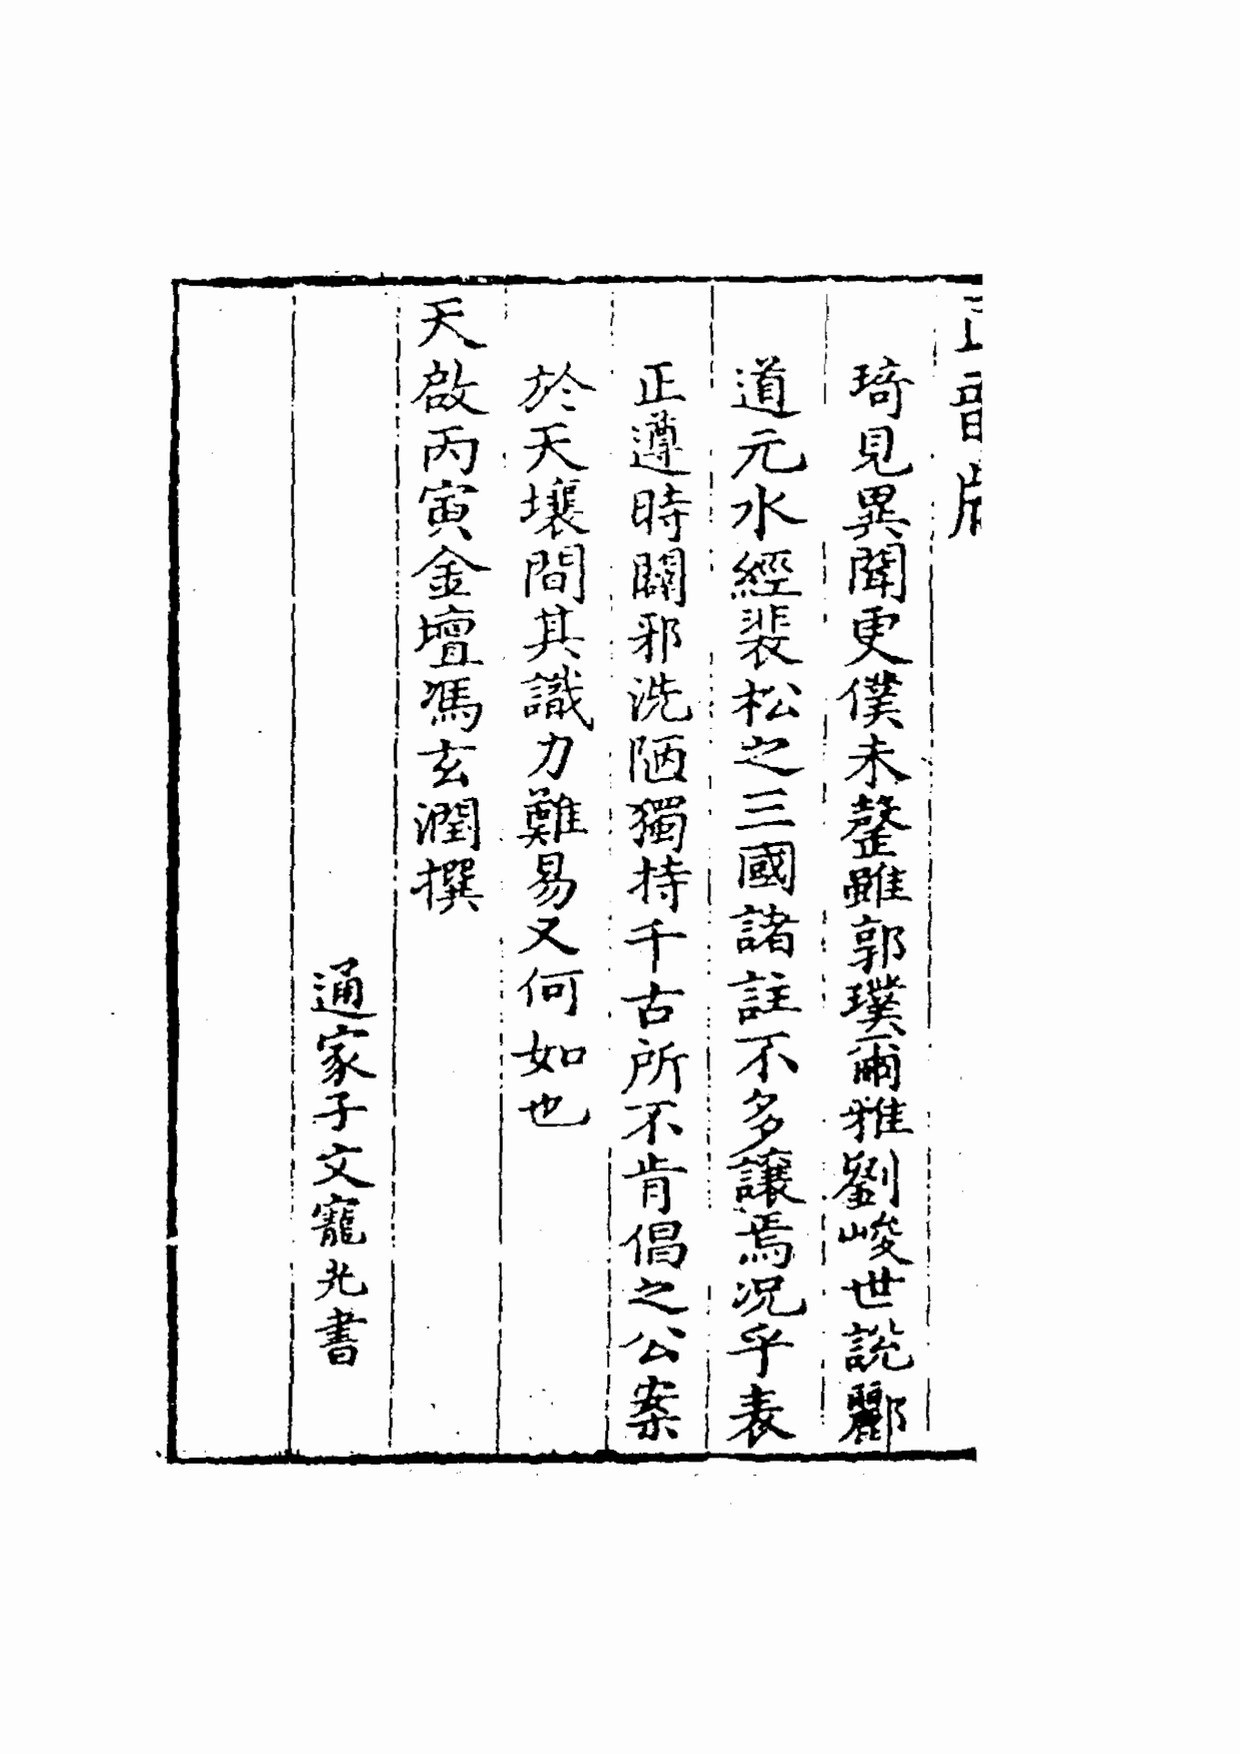 琦見異聞更僕未罄雖郭璞爾雅劉峻世說酈
道元水經裴松之三國諸註不多讓焉况乎表
正遵時闢邪洗陋獨持千古所不肯倡之公案
於天壤間其識力難易又何如也
天啟丙寅金壇馮玄潤撰
通家子文寵光書